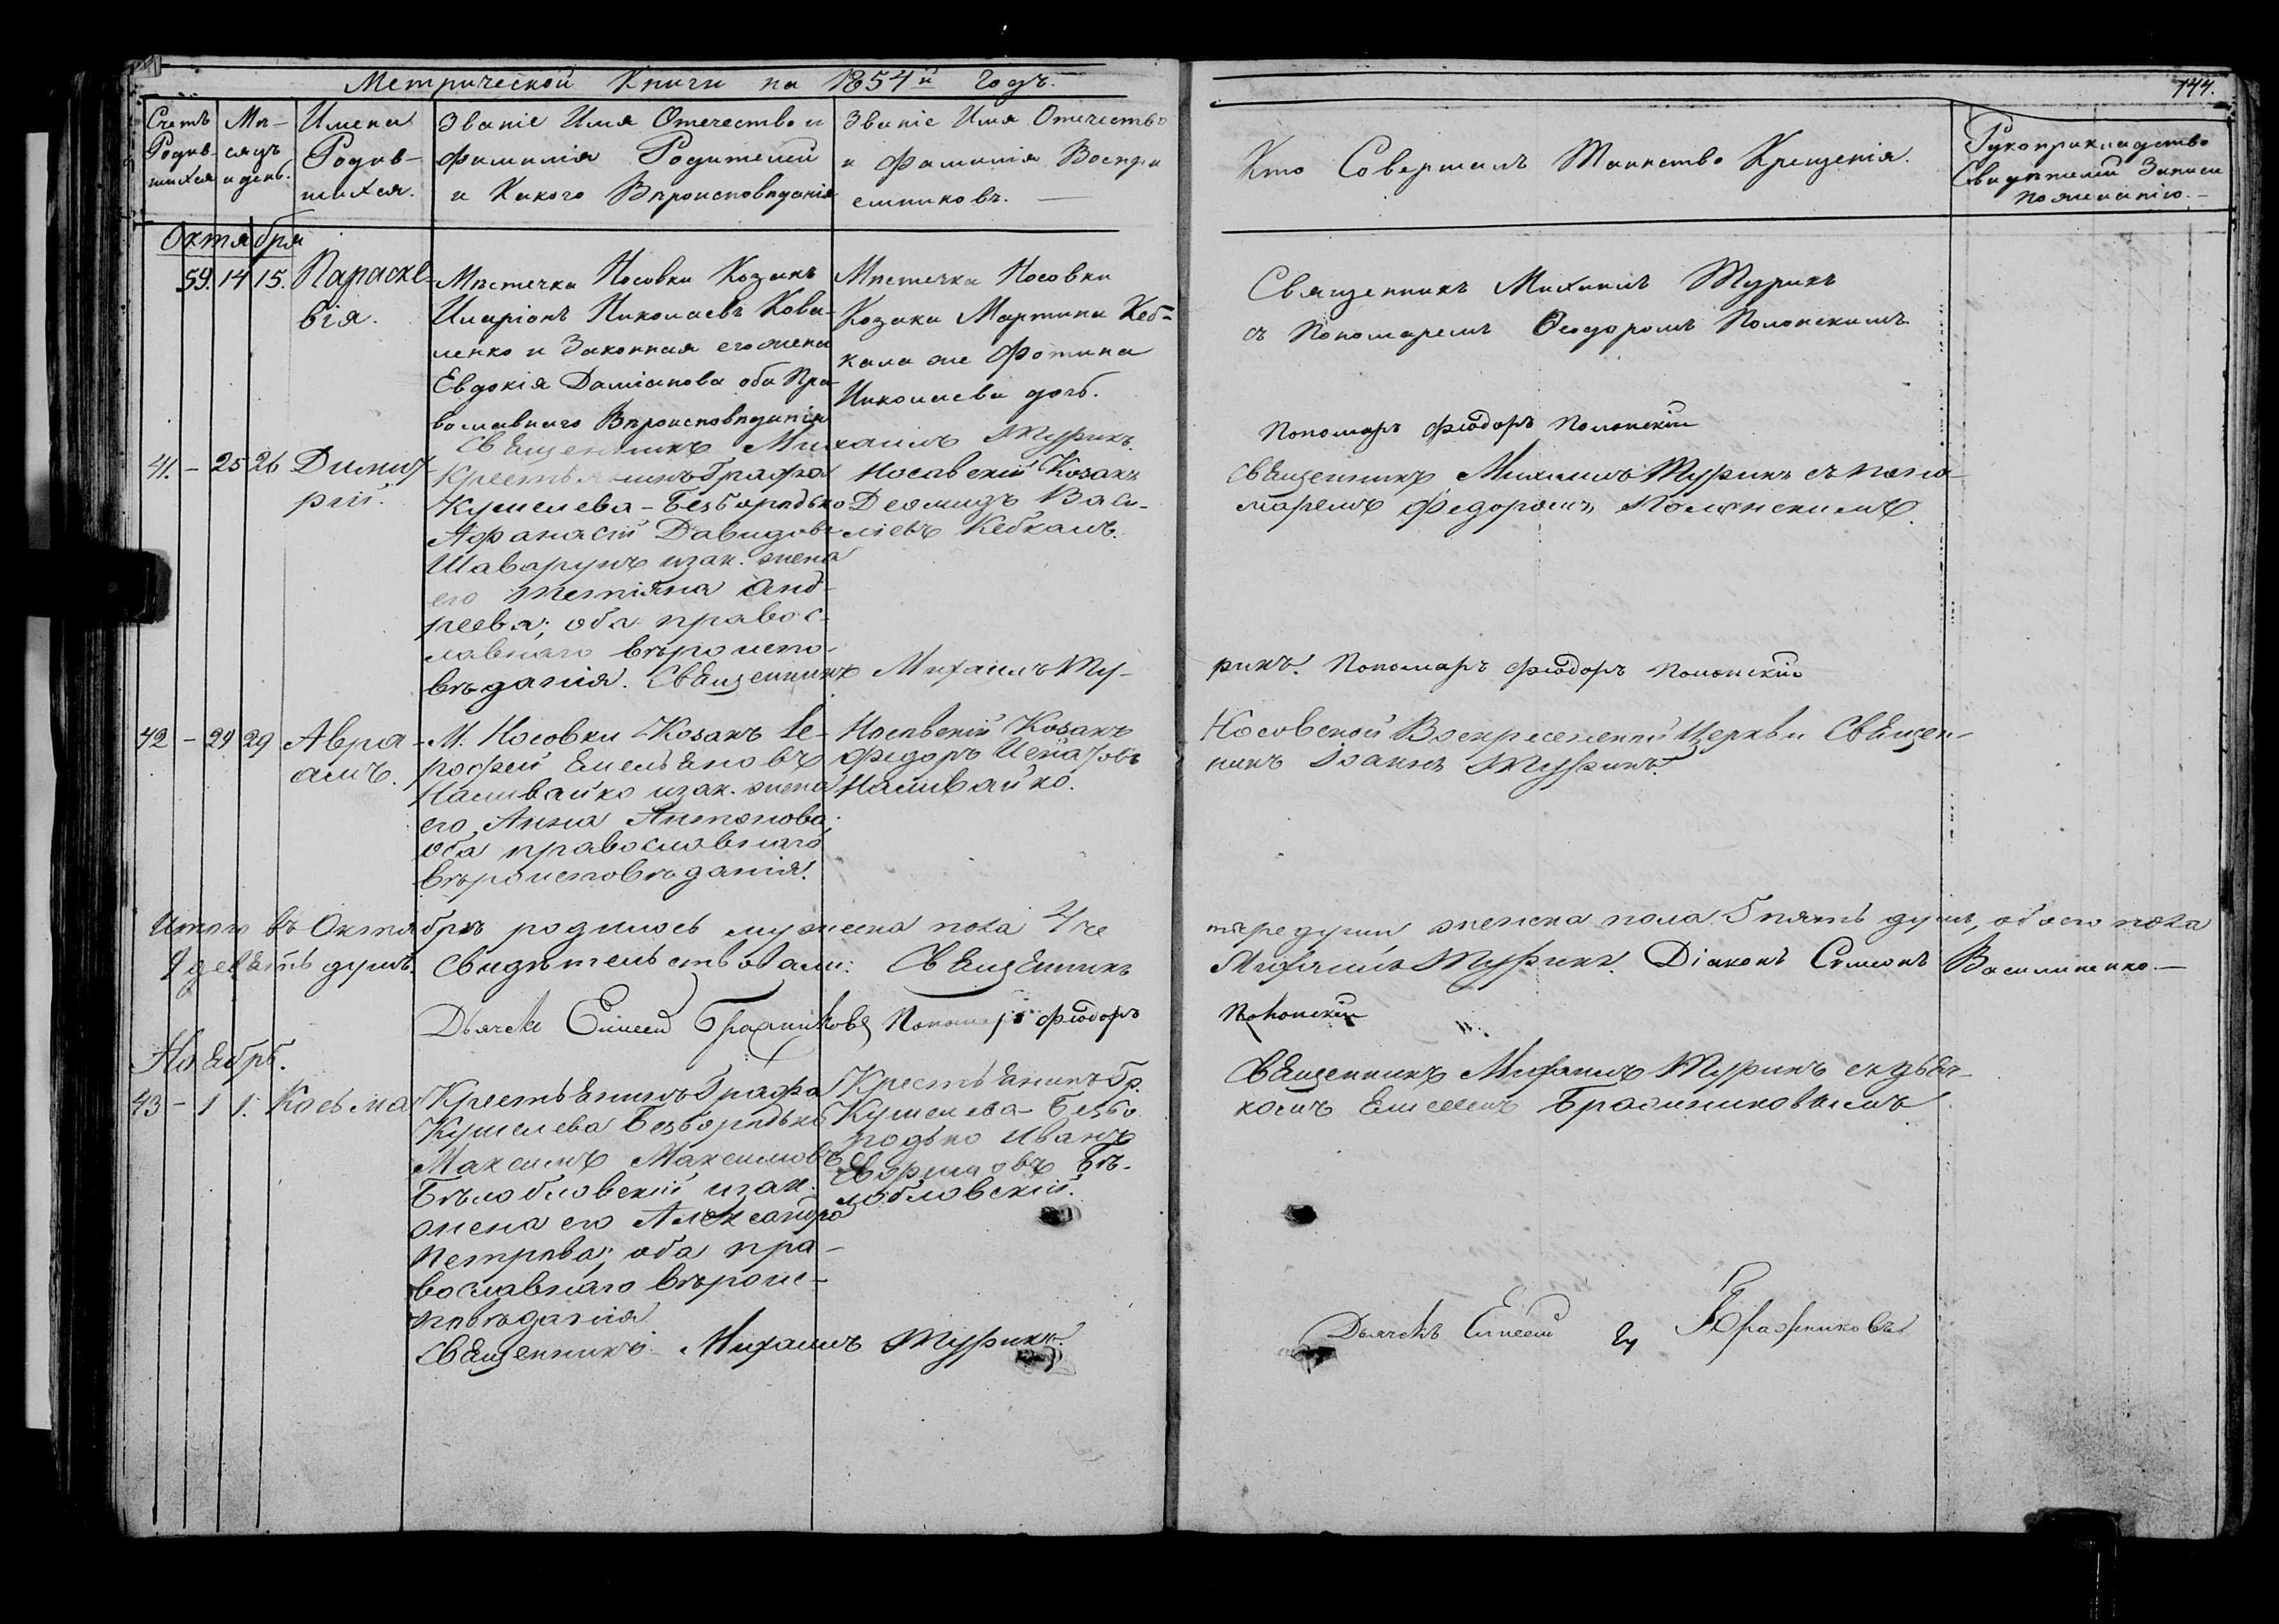 Метрической Книги на 1854й Годъ.
144.
Счетъ Родив- шихся
Мѣ- сяцъ и день.
Имена Родив- шихся.
Званіе Имя Отечество и фамилія Родителей и Какого Вѣроисповѣданія
Званіе Имя Отечество и Фамилія Воспри емниковъ. —
Кто Совершалъ Таинство Крещенія.
Рукоприкладство Свидѣтелей Записи по желанію. —
Октября
59. 14 15. Параске-
вія.
Мѣстечка Носовки Козакъ
Иларіонъ Николаевъ Кова-
ленко и Законная его жена
Евдокія Даміанова оба Пра-
вославнаго Вѣроисповѣданія
Мѣстечка Носовки
Козака Мартина Кеб-
кала же Фотина
Николаева дочь.
Священникъ Михаилъ Турикъ
съ Пономаремъ Ѳеодоромъ Полонскимъ
Священникъ Михаилъ Турикъ.
Пономарь Фіодоръ Полонскій
41. – 25 26 Димит-
рій.
Крестьянинъ Графа
Кушелева-Безбородько
Афанасій Давидовъ
Шаварунъ и зак. жена
его Татіяна Анд-
реева; оба правос-
лавнаго вѣроиспо-
вѣданія. Священникъ Михаилъ Ту-
Носавскій Козакъ
Деомидъ Васи-
ліевъ Кебкалъ.
Священникъ Михаилъ Турикъ съ поно-
маремъ Федоромъ Полонскимъ.
рикъ. Пономарь Фіодоръ Полонскій
42 – 29 29 Авра-
амъ.
М. Носовки Козакъ Је-
рофей Емельяновъ
Наливайко и зак. жена
его Анна Антонова;
оба православнаго
вѣроисповѣданія.
Носовскій Козакъ
Федоръ Игнатовъ
Наливайко.
Носовской Воскресенской Церкви Священ-
никъ Іоаннъ Турикъ.
Итого въ Октябрѣ родилось мужеска пола 4 че
тыре души женска пола 5 пять душъ, обоего пола
9 девять душъ. Свидѣтельствовали: Священникъ
Михаилъ Турикъ. Діаконъ Сѵмеонъ Василиненко —
Дьячекъ Елисей Бражниковъ Пономарь Фіодоръ
Полонскій
Ноябрь.
43 – 1 1. Косьма
Крестьянинъ Графа
Кушелева Безбородько
Максимъ Максимовъ
Бѣлобловскій и зак.
жена его Александра
Петрова; оба пра-
вославнаго вѣроис-
повѣданія
Крестьянинъ Гр.
Кушелева-Безбо
родько Иванъ
Ефремовъ Бѣ-
лобловскій.
Священникъ Михаилъ Турикъ съ дьяч-
комъ Елисеемъ Бражниковымъ
Священникъ Михаилъ Турикъ.
Дьячекъ Елисей Бражниковъ